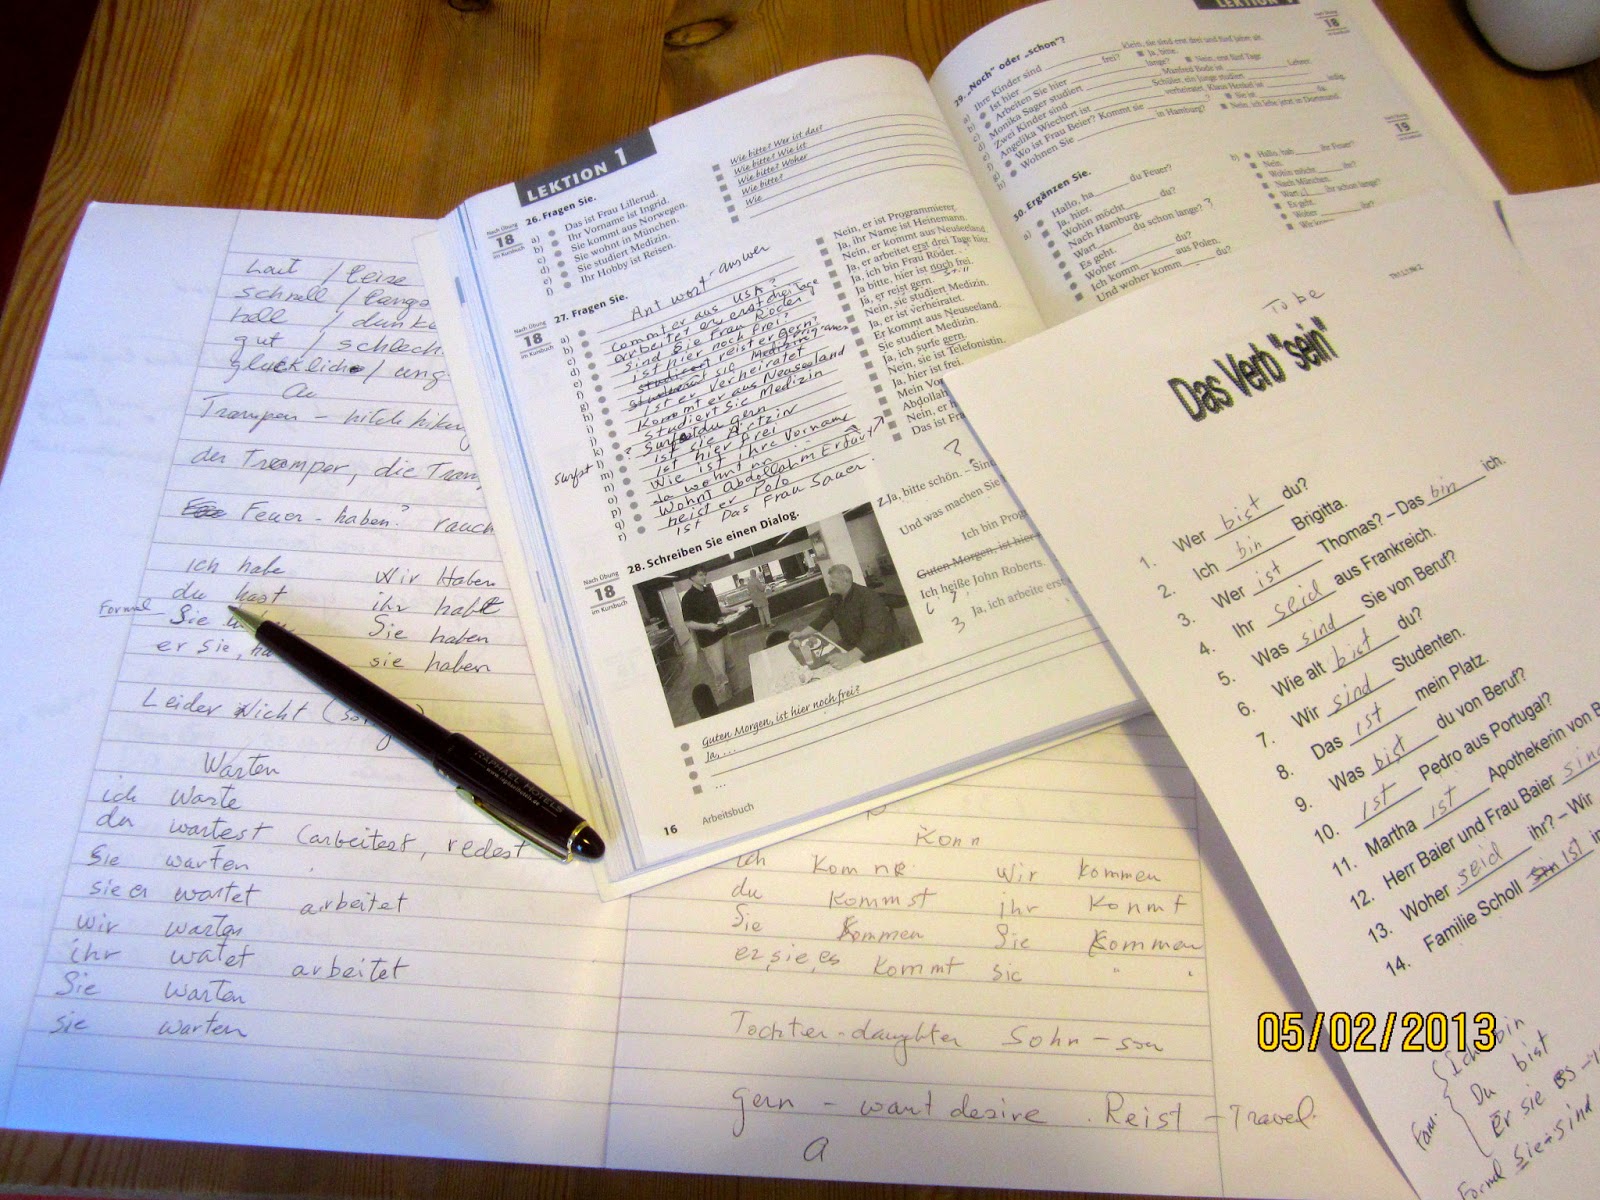 Laut / leise
schnell / langs
hell / dunke
gut / schlech
glucklich / ung
Trampen - hitch hiking
der Tramper, die Tram
Feuer - haben? rauch
ich habe wir Haben
du hast ihr habt
Formal Sie Sie haben
er sie, ha sie haben
Leider Nicht (so
Warten
ich Warte
du wartest (arbeitest, redest
Sie warten
sie er wartet arbeitet
wir warten
ihr watet arbeitet
Sie warten
sie warten
LEKTION 1
Nach Übung
18
im Kursbuch
26. Fragen Sie.
a) Das ist Frau Lillerud.
b) Ihr Vorname ist Ingrid.
c) Sie kommt aus Norwegen.
d) Sie wohnt in München.
e) Sie studiert Medizin.
f) Ihr Hobby ist Reisen.
Wie bitte? Wer ist das?
Wie bitte? Wie ist
Wie bitte? Woher
Wie bitte?
Wie
Nach Übung
18
im Kursbuch
27. Fragen Sie.
Antwort - answer
a) commt er aus USA?
b) arbeitet er erst drei Tage
c) Sind Sie Frau Röder
d) ist hier noch frei?
e) reist er gern?
f) studiert sie Medizin
g) Ist er verheiratet
h) Kommt er aus Neaseeland
i) studiert Sie Medizin
j) Surfst du gern
k) ist sie Ärtzin
surfst l) ist hier frei
m) Wie ist ihre Vorname
n) wohnt
o) Wohnt Abdollah in Erfurt
p) heist er Polo
q) ist Das Frau Sauer.
r)
Nein, er ist Programmierer.
Ja, ihr Name ist Heinemann.
Nein, er kommt aus Neuseeland.
Ja, er arbeitet erst drei Tage hier.
Ja, ich bin Frau Röder.
Ja bitte, hier ist noch frei.
Ja, er reist gern.
Nein, sie studiert Medizin.
Ja, er ist verheiratet.
Er kommt aus Neuseeland.
Sie studiert Medizin.
Ja, ich surfe gern.
Nein, sie ist Telefonistin.
Ja, hier ist frei.
Mein Vor
Abdollah
Nein, er h
Das ist Fra
Nach Übung
18
im Kursbuch
28. Schreiben Sie einen Dialog.
2 Ja, bitte schön. – Sind
Und was machen Sie
Ich bin Prog
Guten Morgen, ist hier
Ich heiße John Roberts.
3 Ja, ich arbeite erst
Guten Morgen, ist hier noch frei?
Ja, ...
...
16 Arbeitsbuch
LEKTION 1
Nach Übung
18
im Kursbuch
29. „Noch“ oder „schon“?
a) Ihre Kinder sind klein, sie sind erst drei und fünf Jahre alt.
b) Ist hier frei? Ja, bitte.
c) Arbeiten Sie hier lange? Nein, erst fünf Tage
d) Monika Sager studiert Manfred Bode ist Lehrer.
e) Zwei Kinder sind Schüler, ein Junge studiert
f) Angelika Wiechert ist verheiratet, Klaus Henkel ist ledig.
g) Wo ist Frau Beier? Kommt sie ? Sie ist da.
h) Wohnen Sie in Hamburg? Nein, ich lebe jetzt in Dortmund.
19
30. Ergänzen Sie.
a) Hallo, ha du Feuer?
Ja, hier.
Wohin möcht du?
Nach Hamburg.
Wart du schon lange?
Es geht.
Woher du?
Ich komm aus Polen.
Und woher komm du?
b) Hallo, hab ihr Feuer?
Nein.
Wohin möcht ihr?
Nach München.
Wart ihr schon lange?
Es geht.
Woher ihr?
To be
Das Verb "sein"
1. Wer bist du?
2. Ich bin Brigitta.
3. Wer ist Thomas? – Das bin ich.
4. Ihr seid aus Frankreich.
5. Was sind Sie von Beruf?
6. Wie alt bist du?
7. Wir sind Studenten.
8. Das ist mein Platz.
9. Was bist du von Beruf?
10. Ist Pedro aus Portugal?
11. Martha ist Apothekerin von B
12. Herr Baier und Frau Baier sind
13. Woher seid ihr? – Wir
14. Familie Scholl ist in
Ich bin
Du bist
Er sie es
Fami
Formal Sie sind
Konn
ich komme wir kommen
du kommst ihr konmt
Sie kommen Sie kommen
er, sie, es kommt sie " "
Tochter - daughter Sohn - son
gern - want desire. Reist - Travel.
a
RAPHAEL HOTELS
05/02/2013